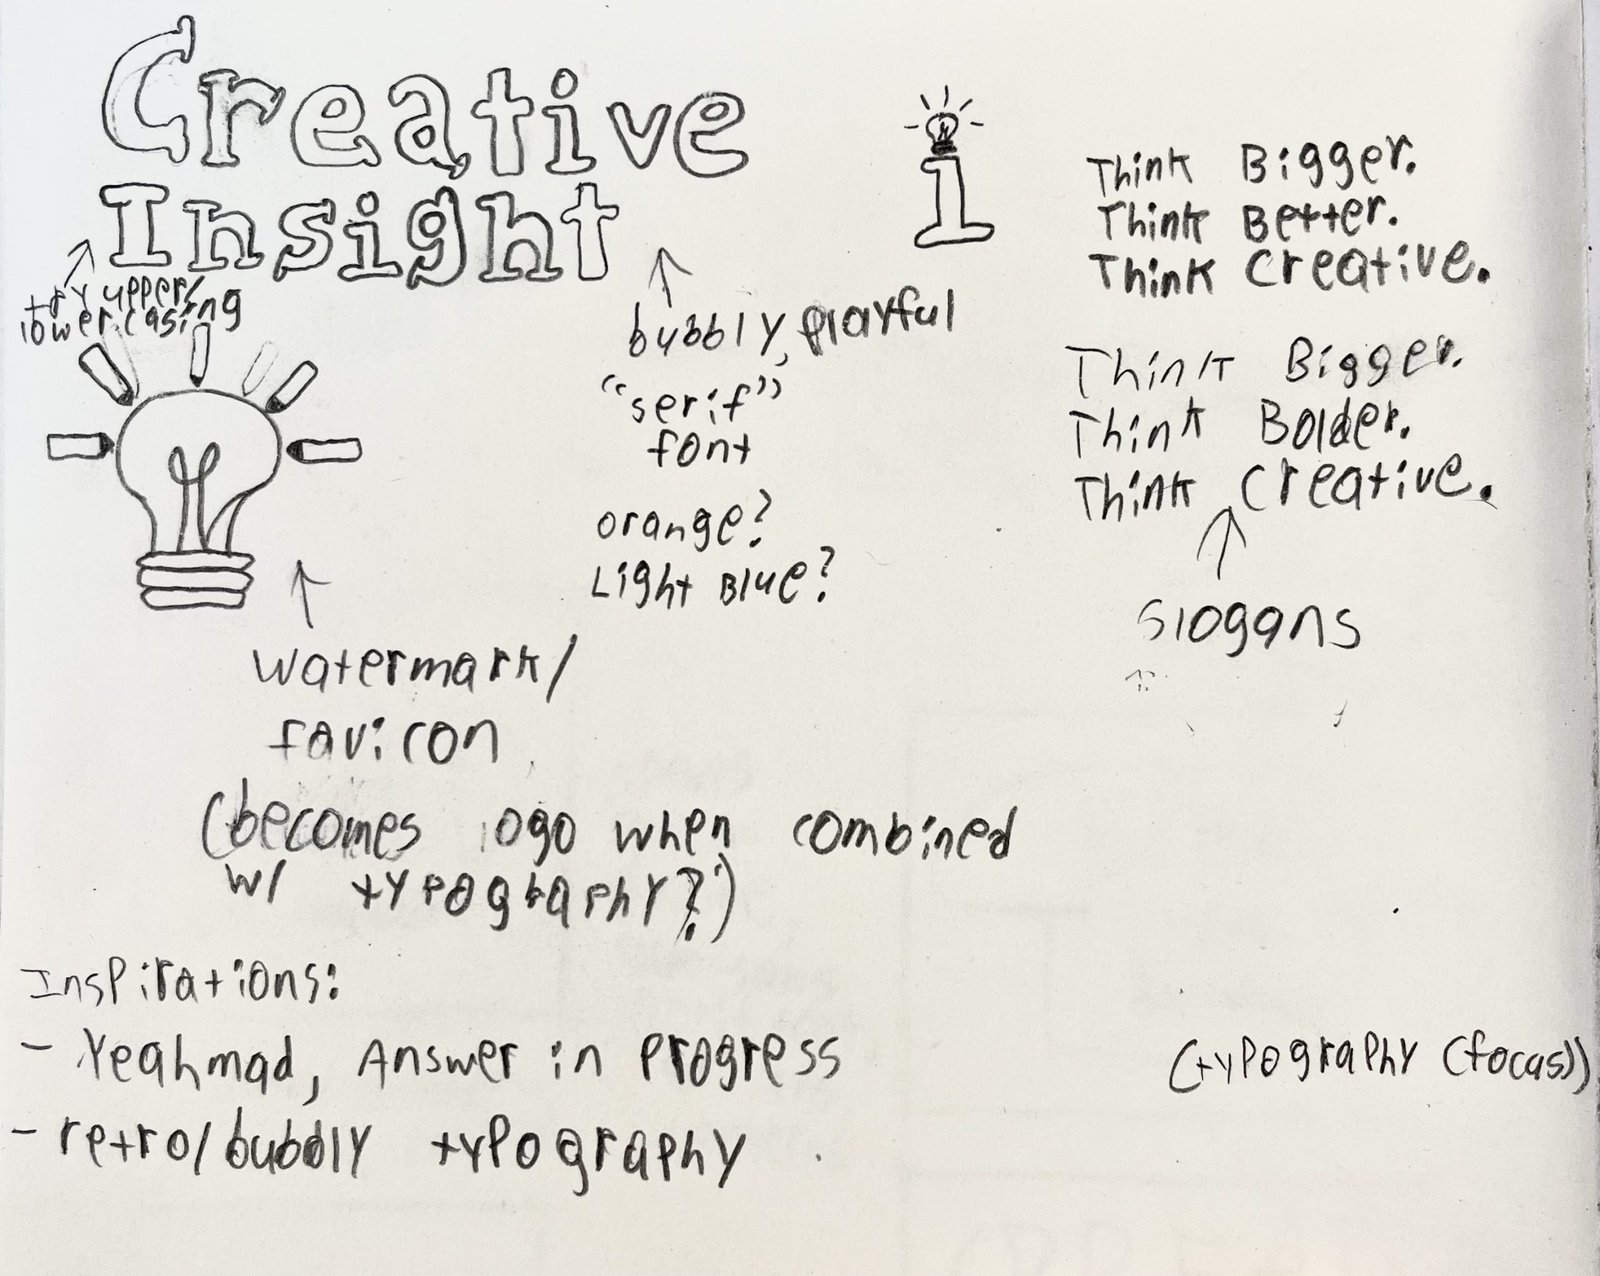 Creative
Insight
try upper/
lower casing
bubbly, playful
"serif"
font
orange?
Light Blue?
i
Think Bigger.
Think Better.
Think Creative.
Think Bigger.
Think Bolder.
Think Creative.
Slogans
watermark/
favicon
(becomes logo when combined
w/ typography?)
Inspirations:
- Yeahmad, Answer in Progress
- retro/bubbly typography
(typography (focus))